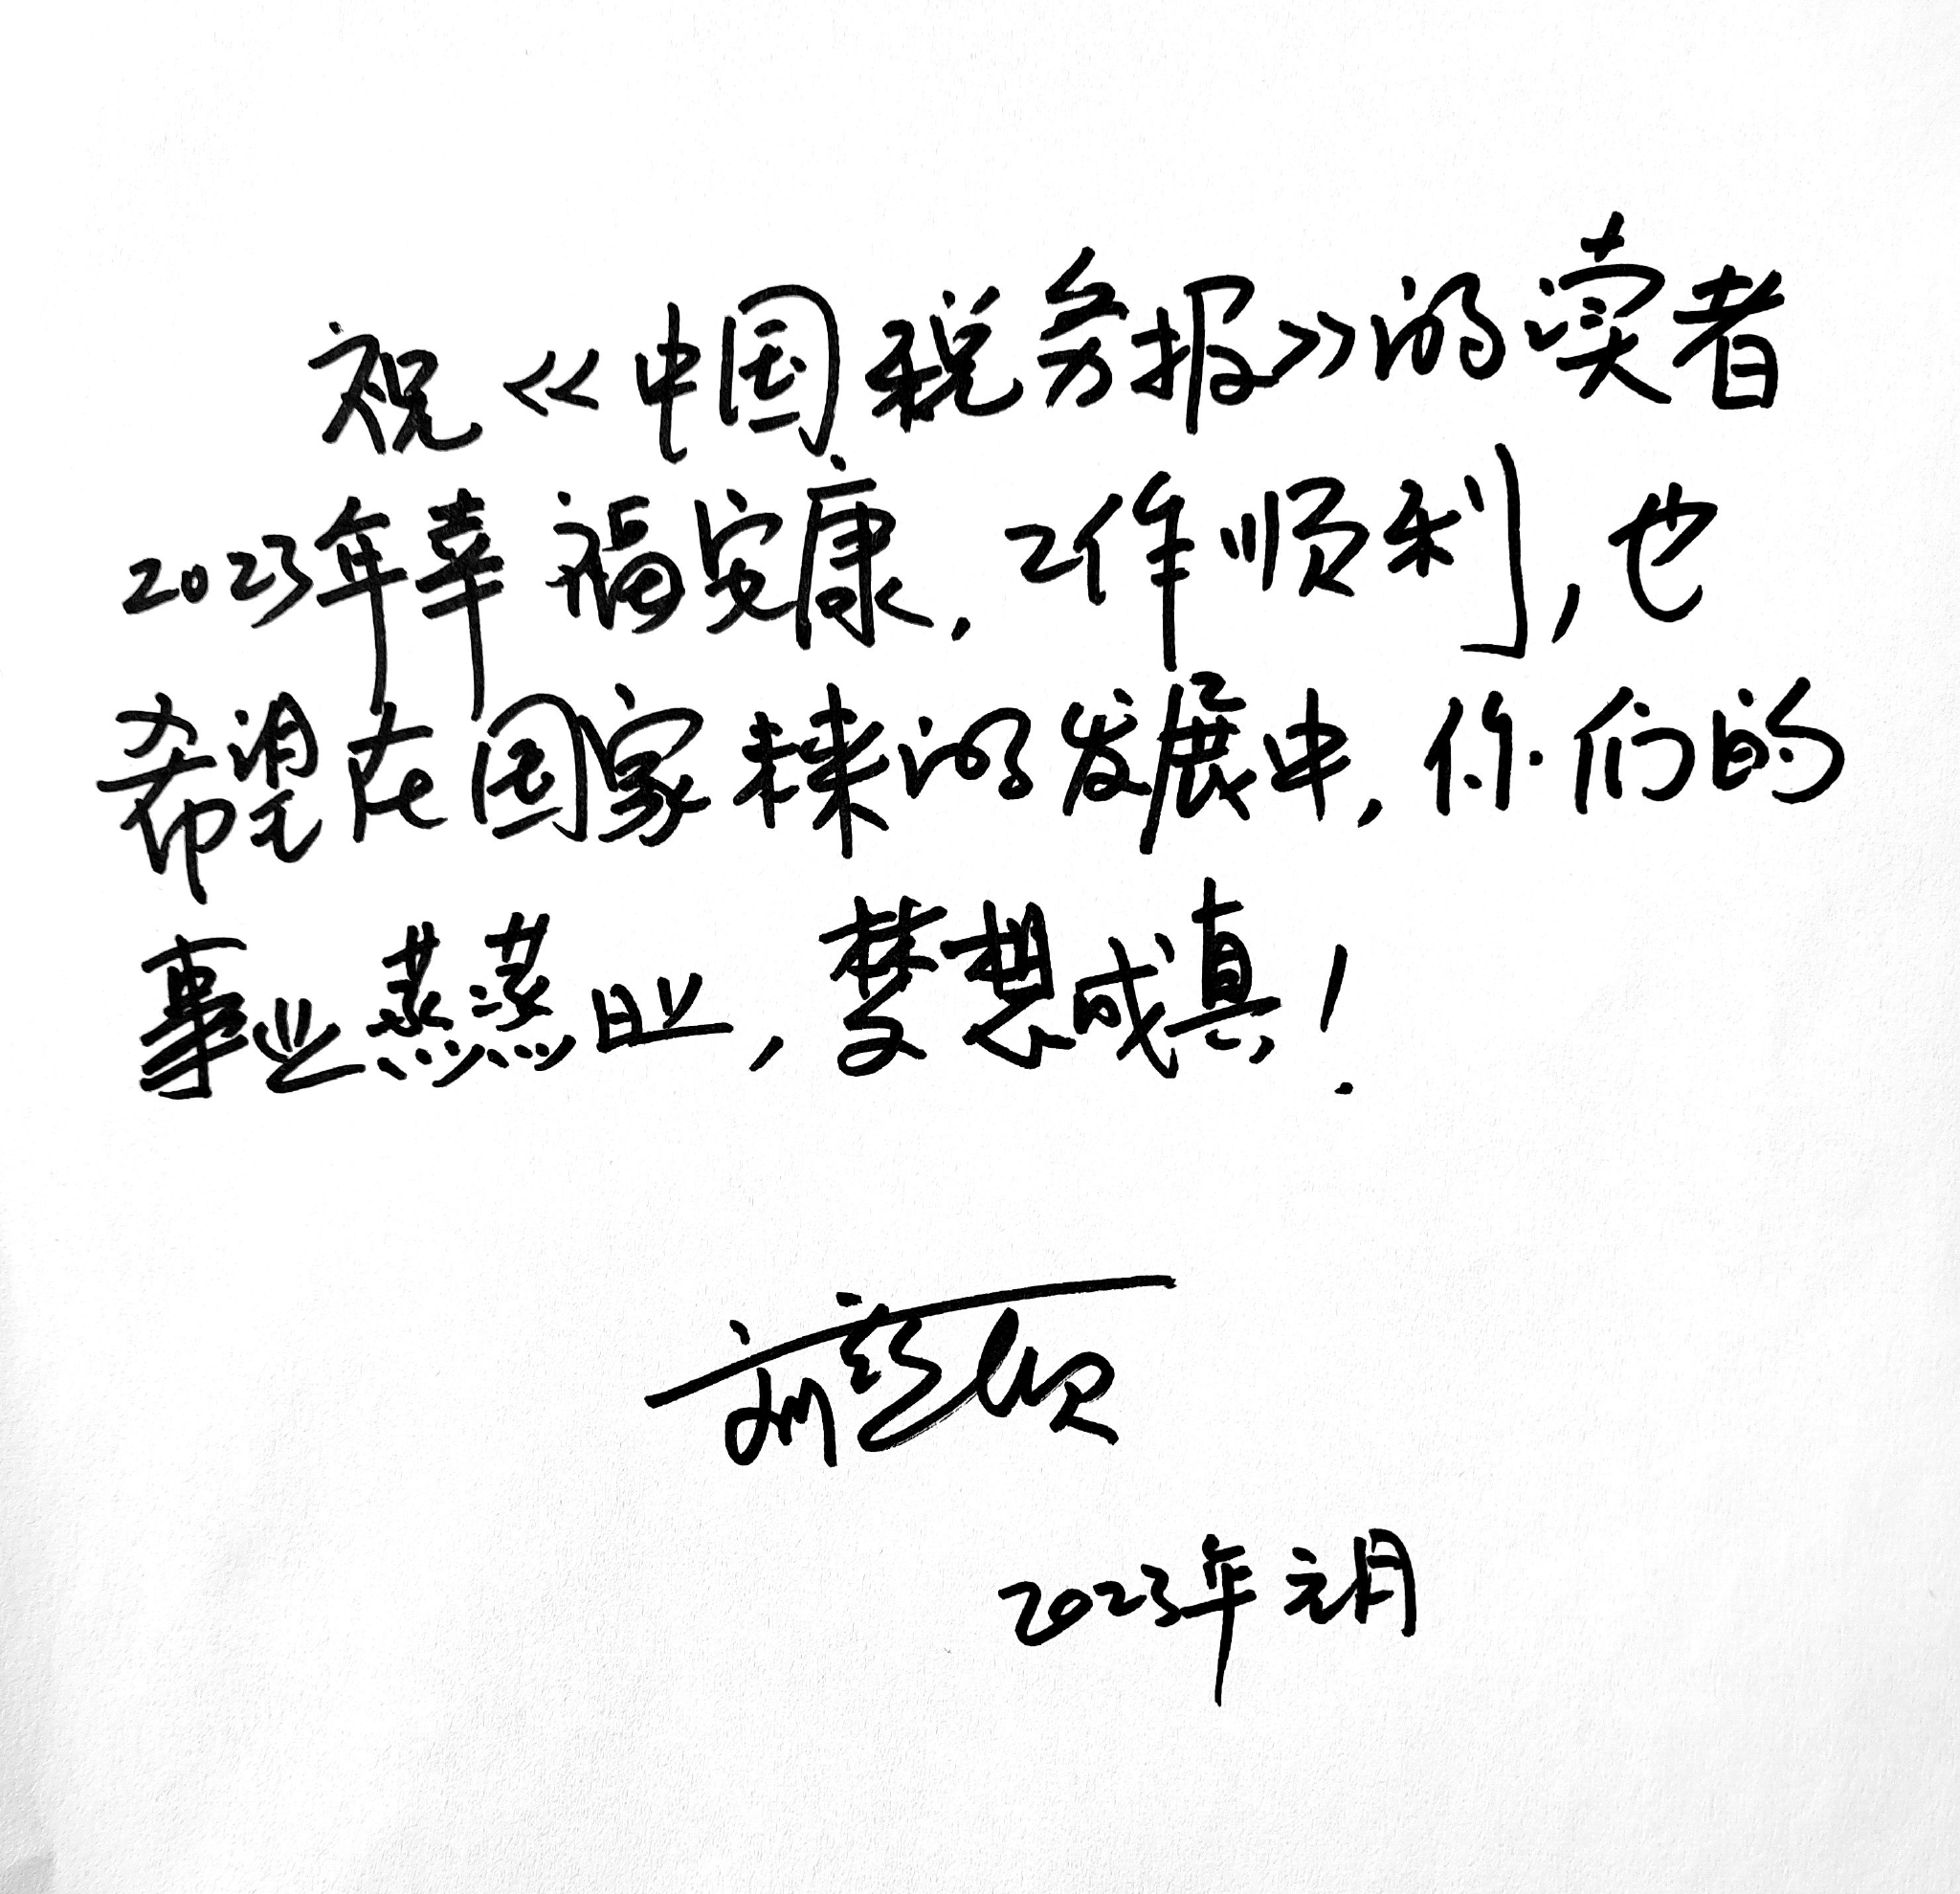 祝《中国税务报》的读者
2023年幸福安康，工作顺利，也
希望在国家未来的发展中，你们的
事业蒸蒸日上，梦想成真！
2023年元月